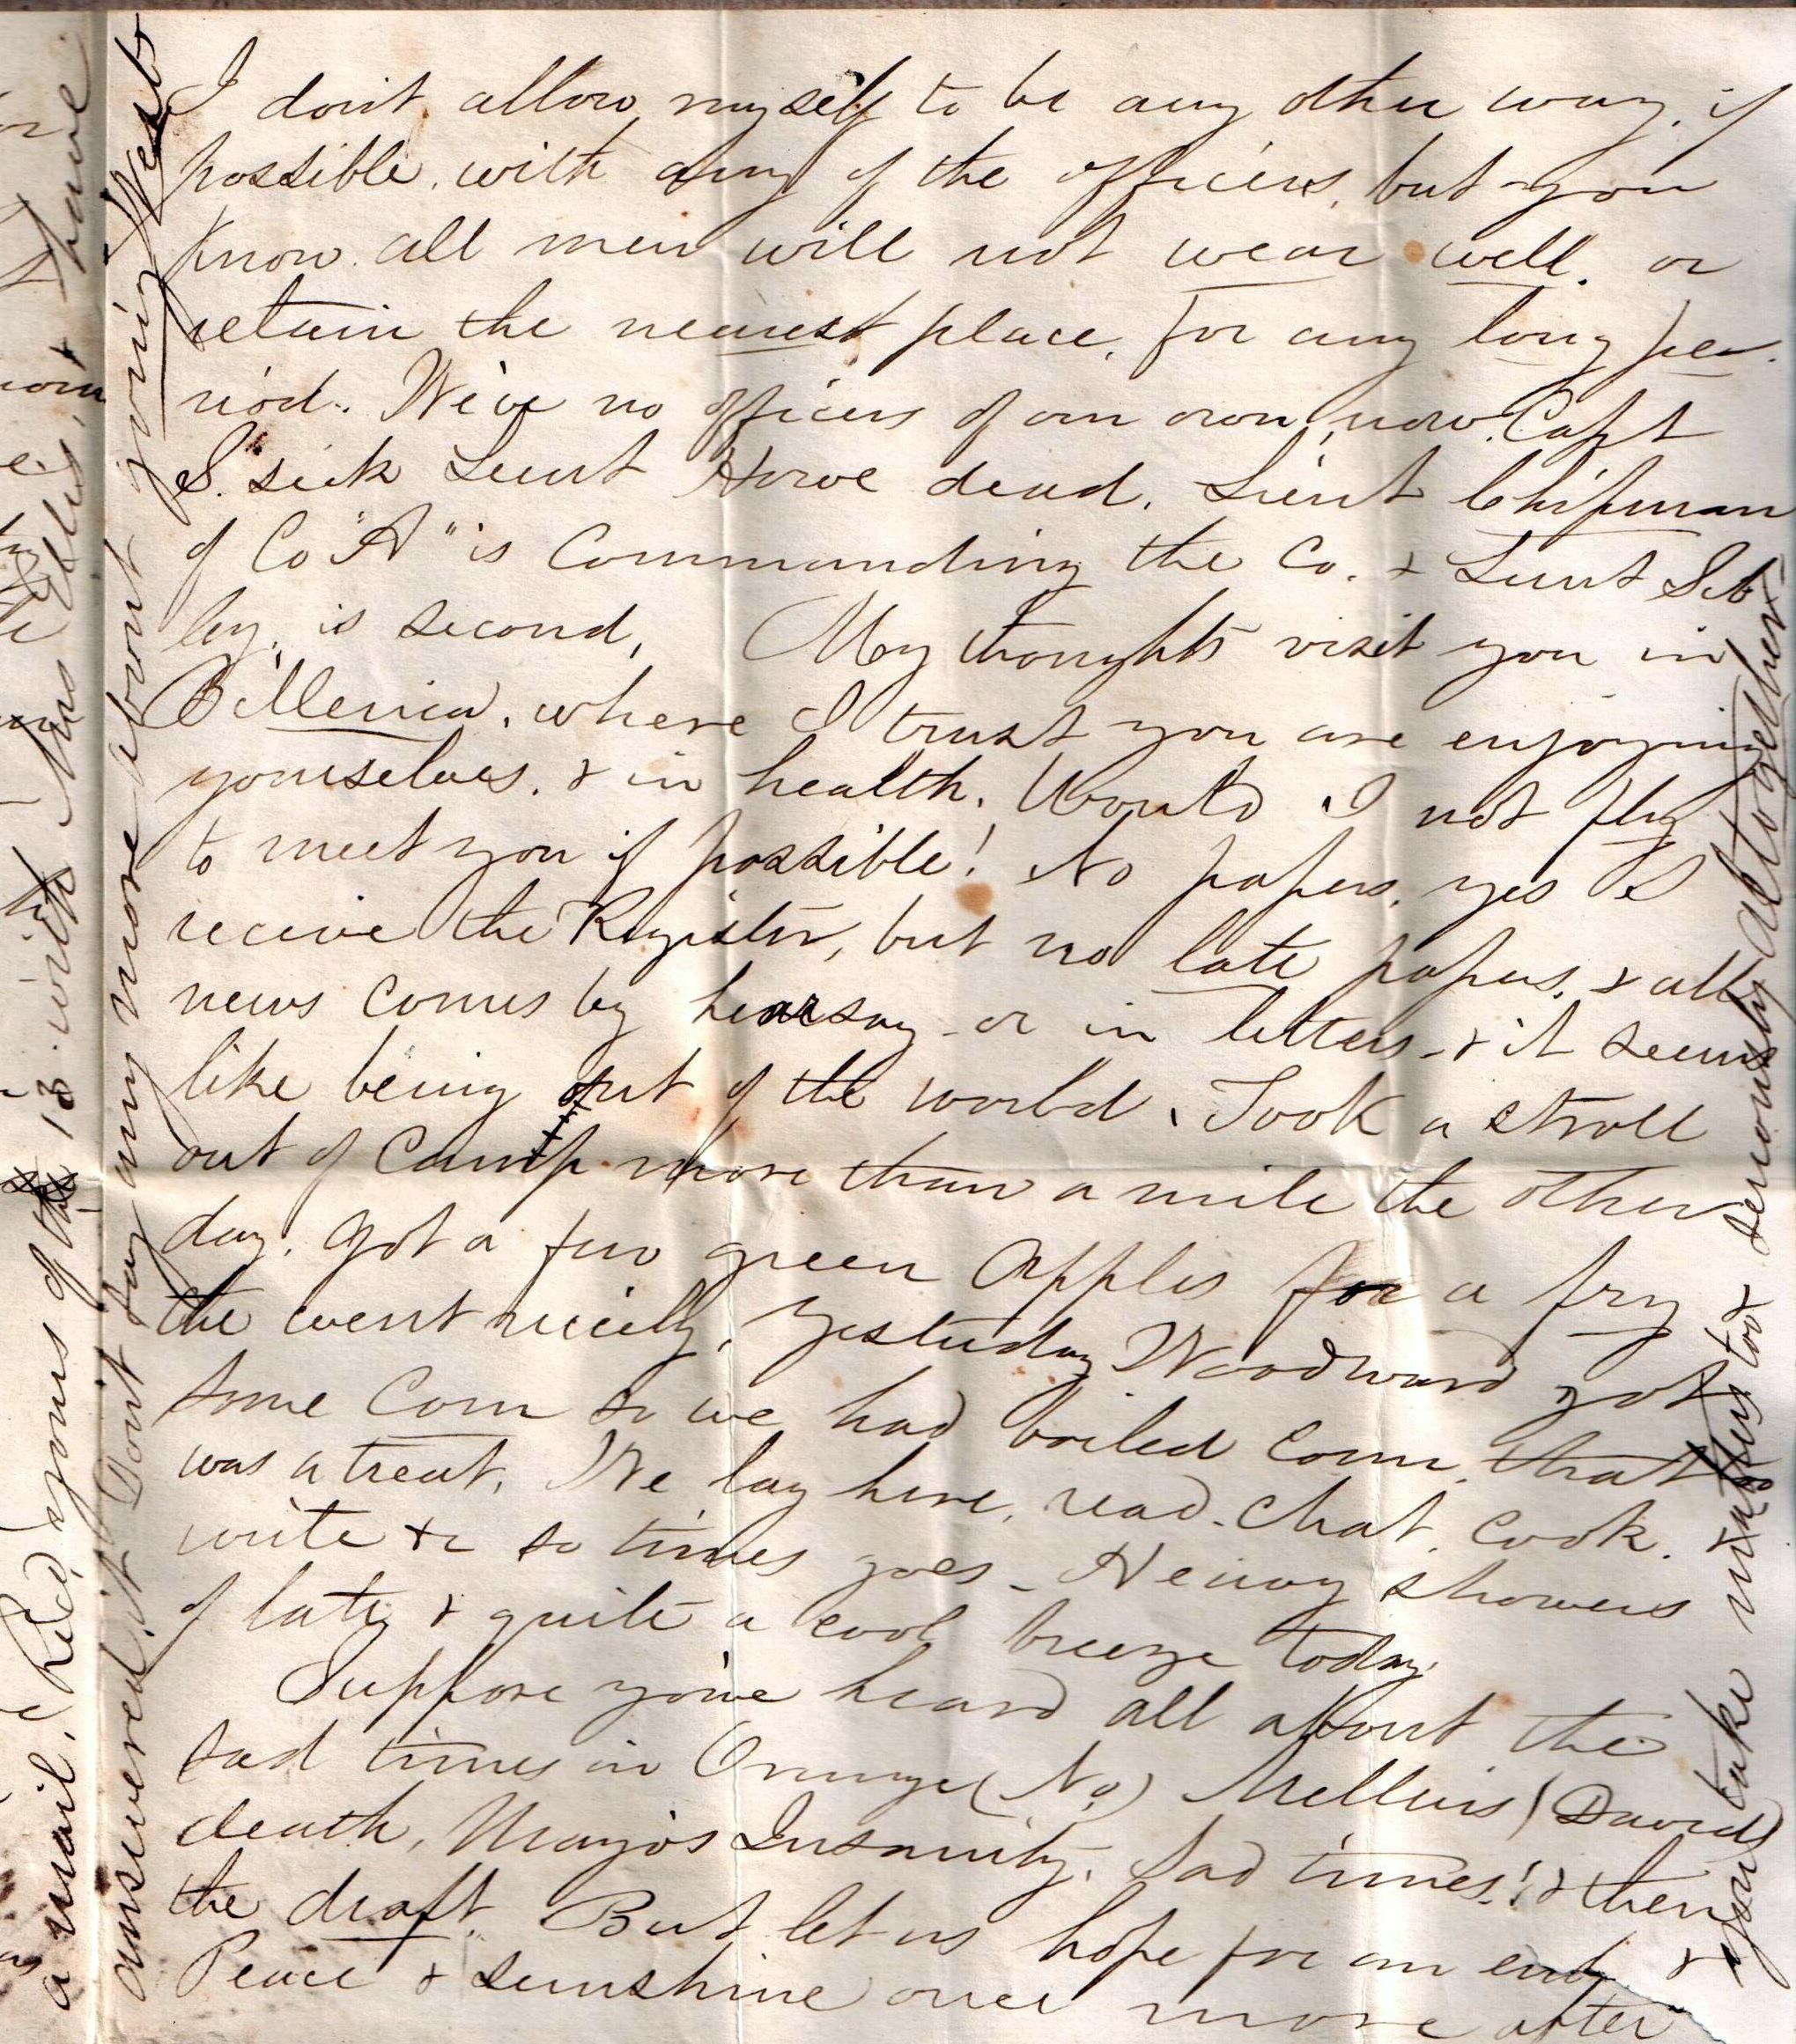 I dont allow myself to be any other way, if
possible, with any of the officers, but you
know all men will not wear well, or
retain the nearest place, for any long pe-
riod. We've no officers of our own, now. Capt
S. sick Lieut Howe dead. Lieut Chipman
of Co "A" is Commanding the Co. & Lieut Sib
ley, is second. My thoughts visit you in
Billerica, where I trust you are enjoying
yourselves, & in health. Would I not fly
to meet you if possible! No papers, yes I
receive the Register, but no late papers, & all
news comes by hearsay - or in letters - & it seems
like being out of the world. Took a stroll
out of Camp more than a mile the other
day. got a few green Apples for a fry
the went nicely. Yesterday Woodward got
some Corn so we had boiled corn, that
was a treat. We lay here, read - chat, cook.
write &c so times goes - Heavy showers
of late & quite a cool breeze today.
Suppose you've heard all about the
sad times in Orange (No) Mellens (David)
death, Mayo's Insanity. Sad times! & then
the draft. But let us hope for an end, &
Peace & sunshine once more after
answered it. Dont say any more about going West
you take matters too seriously altogether
a mail. I Recd yours of the 13 with Mrs